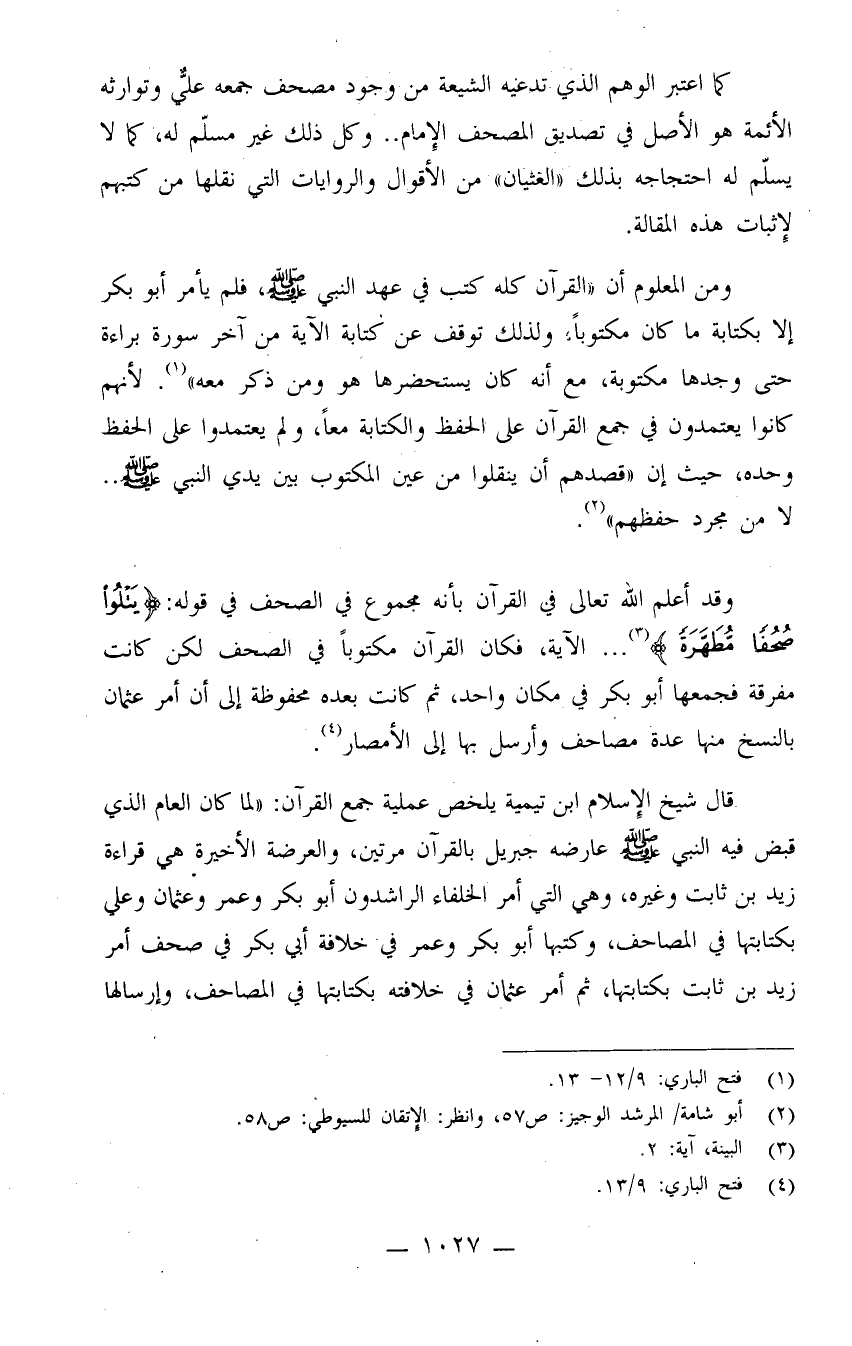 كما اعتبر الوهم الذي تدعيه الشيعة من وجود مصحف جمعه عليٌّ وتوارثه
الأئمة هو الأصل في تصديق المصحف الإمام.. وكل ذلك غير مسلّم له، كما لا
يسلّم له احتجاجه بذلك «الغثيان» من الأقوال والروايات التي نقلها من كتبهم
لإثبات هذه المقالة.
ومن المعلوم أن «القرآن كله كتب في عهد النبي ﷺ، فلم يأمر أبو بكر
إلا بكتابة ما كان مكتوباً، ولذلك توقف عن كتابة الآية من آخر سورة براءة
حتى وجدها مكتوبة، مع أنه كان يستحضرها هو ومن ذكر معه»(١). لأنهم
كانوا يعتمدون في جمع القرآن على الحفظ والكتابة معاً، ولم يعتمدوا على الحفظ
وحده، حيث إن «قصدهم أن ينقلوا من عين المكتوب بين يدي النبي ﷺ..
لا من مجرد حفظهم»(٢).
وقد أعلم الله تعالى في القرآن بأنه مجموع في الصحف في قوله: ﴿يَتْلُواْ
صُحُفًا مُّطَهَّرَةً﴾(٣)... الآية، فكان القرآن مكتوباً في الصحف لكن كانت
مفرقة فجمعها أبو بكر في مكان واحد، ثم كانت بعده محفوظة إلى أن أمر عثمان
بالنسخ منها عدة مصاحف وأرسل بها إلى الأمصار(٤).
قال شيخ الإسلام ابن تيمية يلخص عملية جمع القرآن: «لما كان العام الذي
قبض فيه النبي ﷺ عارضه جبريل بالقرآن مرتين، والعرضة الأخيرة هي قراءة
زيد بن ثابت وغيره، وهي التي أمر الخلفاء الراشدون أبو بكر وعمر وعثمان وعلي
بكتابتها في المصاحف، وكتبها أبو بكر وعمر في خلافة أبي بكر في صحف أمر
زيد بن ثابت بكتابتها، ثم أمر عثمان في خلافته بكتابتها في المصاحف، وإرسالها
(١) فتح الباري: ١٢/٩– ١٣.
(٢) أبو شامة/ المرشد الوجيز: ص٥٧، وانظر: الإتقان للسيوطي: ص٥٨.
(٣) البينة، آية: ٢.
(٤) فتح الباري: ١٣/٩.
— ١٠٢٧ —